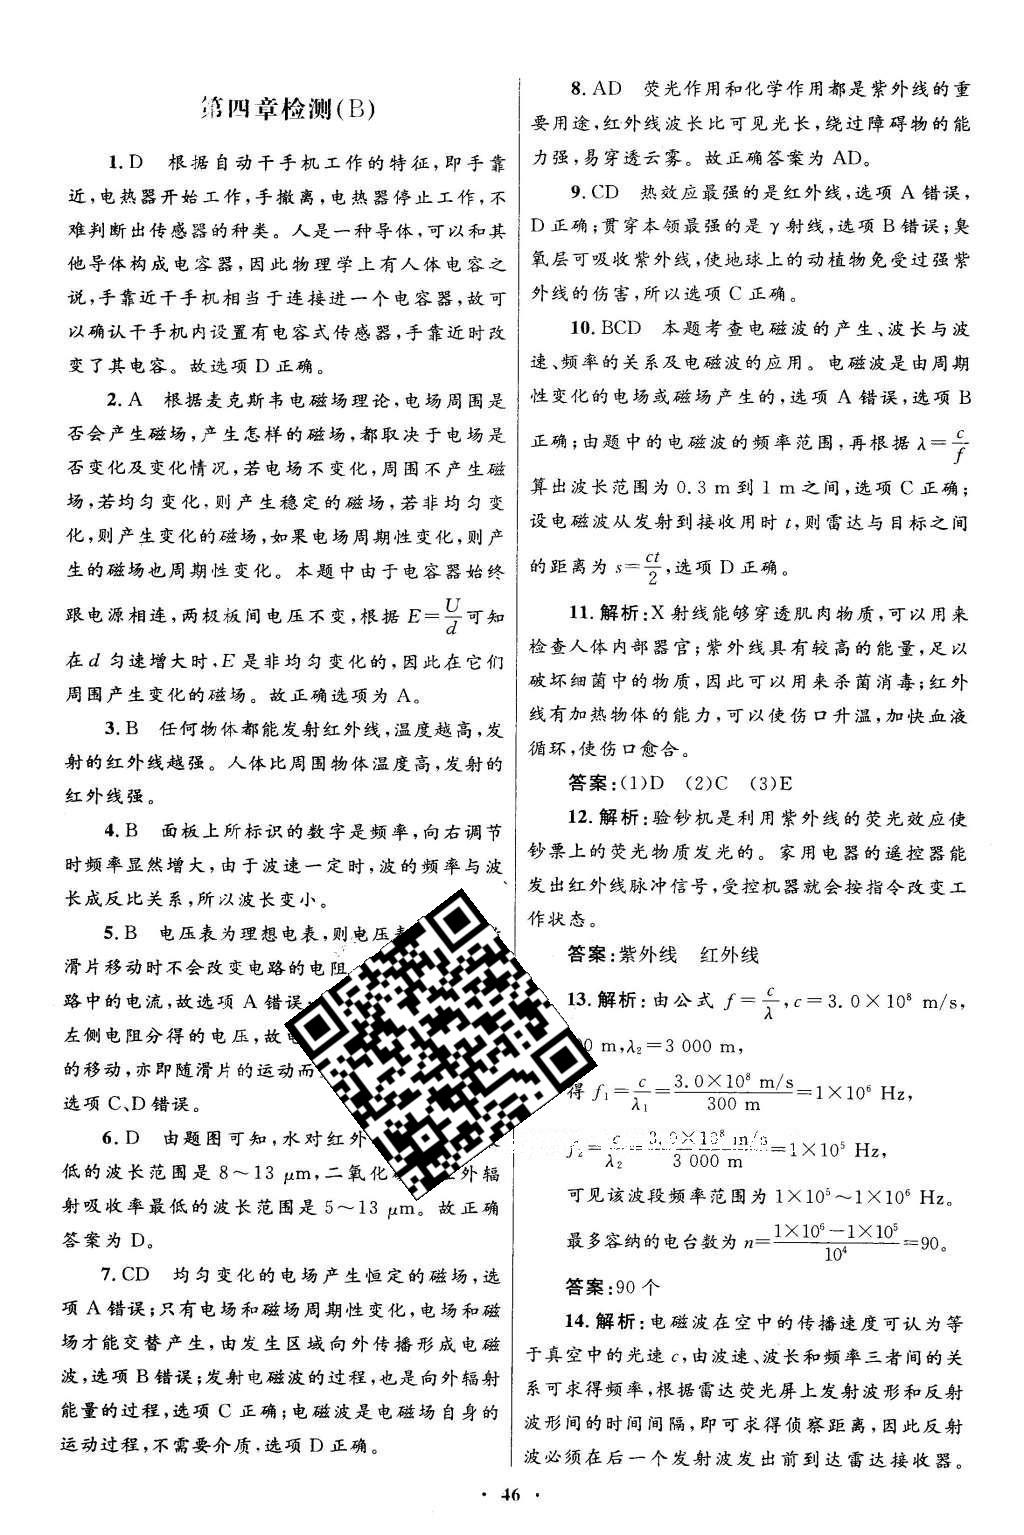 第四章检测(B)
1. D　根据自动干手机工作的特征,即手靠
近,电热器开始工作,手撤离,电热器停止工作,不
难判断出传感器的种类。人是一种导体,可以和其
他导体构成电容器,因此物理学上有人体电容之
说,手靠近干手机相当于连接进一个电容器,故可
以确认干手机内设置有电容式传感器,手靠近时改
变了其电容。故选项 D 正确。
2. A　根据麦克斯韦电磁场理论,电场周围是
否会产生磁场,产生怎样的磁场,都取决于电场是
否变化及变化情况,若电场不变化,周围不产生磁
场,若均匀变化,则产生稳定的磁场,若非均匀变
化,则产生变化的磁场,如果电场周期性变化,则产
生的磁场也周期性变化。本题中由于电容器始终
跟电源相连,两极板间电压不变,根据 E=U/d可知
在 d 匀速增大时,E 是非均匀变化的,因此在它们
周围产生变化的磁场。故正确选项为 A。
3. B　任何物体都能发射红外线,温度越高,发
射的红外线越强。人体比周围物体温度高,发射的
红外线强。
4. B　面板上所标识的数字是频率,向右调节
时频率显然增大,由于波速一定时,波的频率与波
长成反比关系,所以波长变小。
5. B　电压表为理想电表,则电压表
滑片移动时不会改变电路的电阻
路中的电流,故选项 A 错误
左侧电阻分得的电压,故电
的移动,亦即随滑片的运动而
选项 C、D 错误。
6. D　由题图可知,水对红外
低的波长范围是 8～13 μm,二氧化 外辐
射吸收率最低的波长范围是 5～13 μm。故正确
答案为 D。
7. CD　均匀变化的电场产生恒定的磁场,选
项 A 错误;只有电场和磁场周期性变化,电场和磁
场才能交替产生,由发生区域向外传播形成电磁
波,选项 B 错误;发射电磁波的过程,也是向外辐射
能量的过程,选项 C 正确;电磁波是电磁场自身的
运动过程,不需要介质,选项 D 正确。
8. AD　荧光作用和化学作用都是紫外线的重
要用途,红外线波长比可见光长,绕过障碍物的能
力强,易穿透云雾。故正确答案为 AD。
9. CD　热效应最强的是红外线,选项 A 错误,
D 正确;贯穿本领最强的是 γ 射线,选项 B 错误;臭
氧层可吸收紫外线,使地球上的动植物免受过强紫
外线的伤害,所以选项 C 正确。
10. BCD　本题考查电磁波的产生、波长与波
速、频率的关系及电磁波的应用。电磁波是由周期
性变化的电场或磁场产生的,选项 A 错误,选项 B
正确;由题中的电磁波的频率范围,再根据 λ=c/f
算出波长范围为 0.3 m 到 1 m 之间,选项 C 正确;
设电磁波从发射到接收用时 t,则雷达与目标之间
的距离为 s=ct/2,选项 D 正确。
11. 解析:X 射线能够穿透肌肉物质,可以用来
检查人体内部器官;紫外线具有较高的能量,足以
破坏细菌中的物质,因此可以用来杀菌消毒;红外
线有加热物体的能力,可以使伤口升温,加快血液
循环,使伤口愈合。
答案:(1)D　(2)C　(3)E
12. 解析:验钞机是利用紫外线的荧光效应使
钞票上的荧光物质发光的。家用电器的遥控器能
发出红外线脉冲信号,受控机器就会按指令改变工
作状态。
答案:紫外线　红外线
13. 解析:由公式 f=c/λ,c=3.0×10⁸ m/s,
0 m,λ₂=3 000 m,
得 f₁=c/λ₁=3.0×10⁸ m/s/300 m=1×10⁶ Hz,
f₂=c/λ₂=3.0×10⁸ m/s/3 000 m=1×10⁵ Hz,
可见该波段频率范围为 1×10⁵～1×10⁶ Hz。
最多容纳的电台数为 n=1×10⁶-1×10⁵/10⁴=90。
答案:90 个
14. 解析:电磁波在空中的传播速度可认为等
于真空中的光速 c,由波速、波长和频率三者间的关
系可求得频率,根据雷达荧光屏上发射波形和反射
波形间的时间间隔,即可求得侦察距离,因此反射
波必须在后一个发射波发出前到达雷达接收器。
· 46 ·